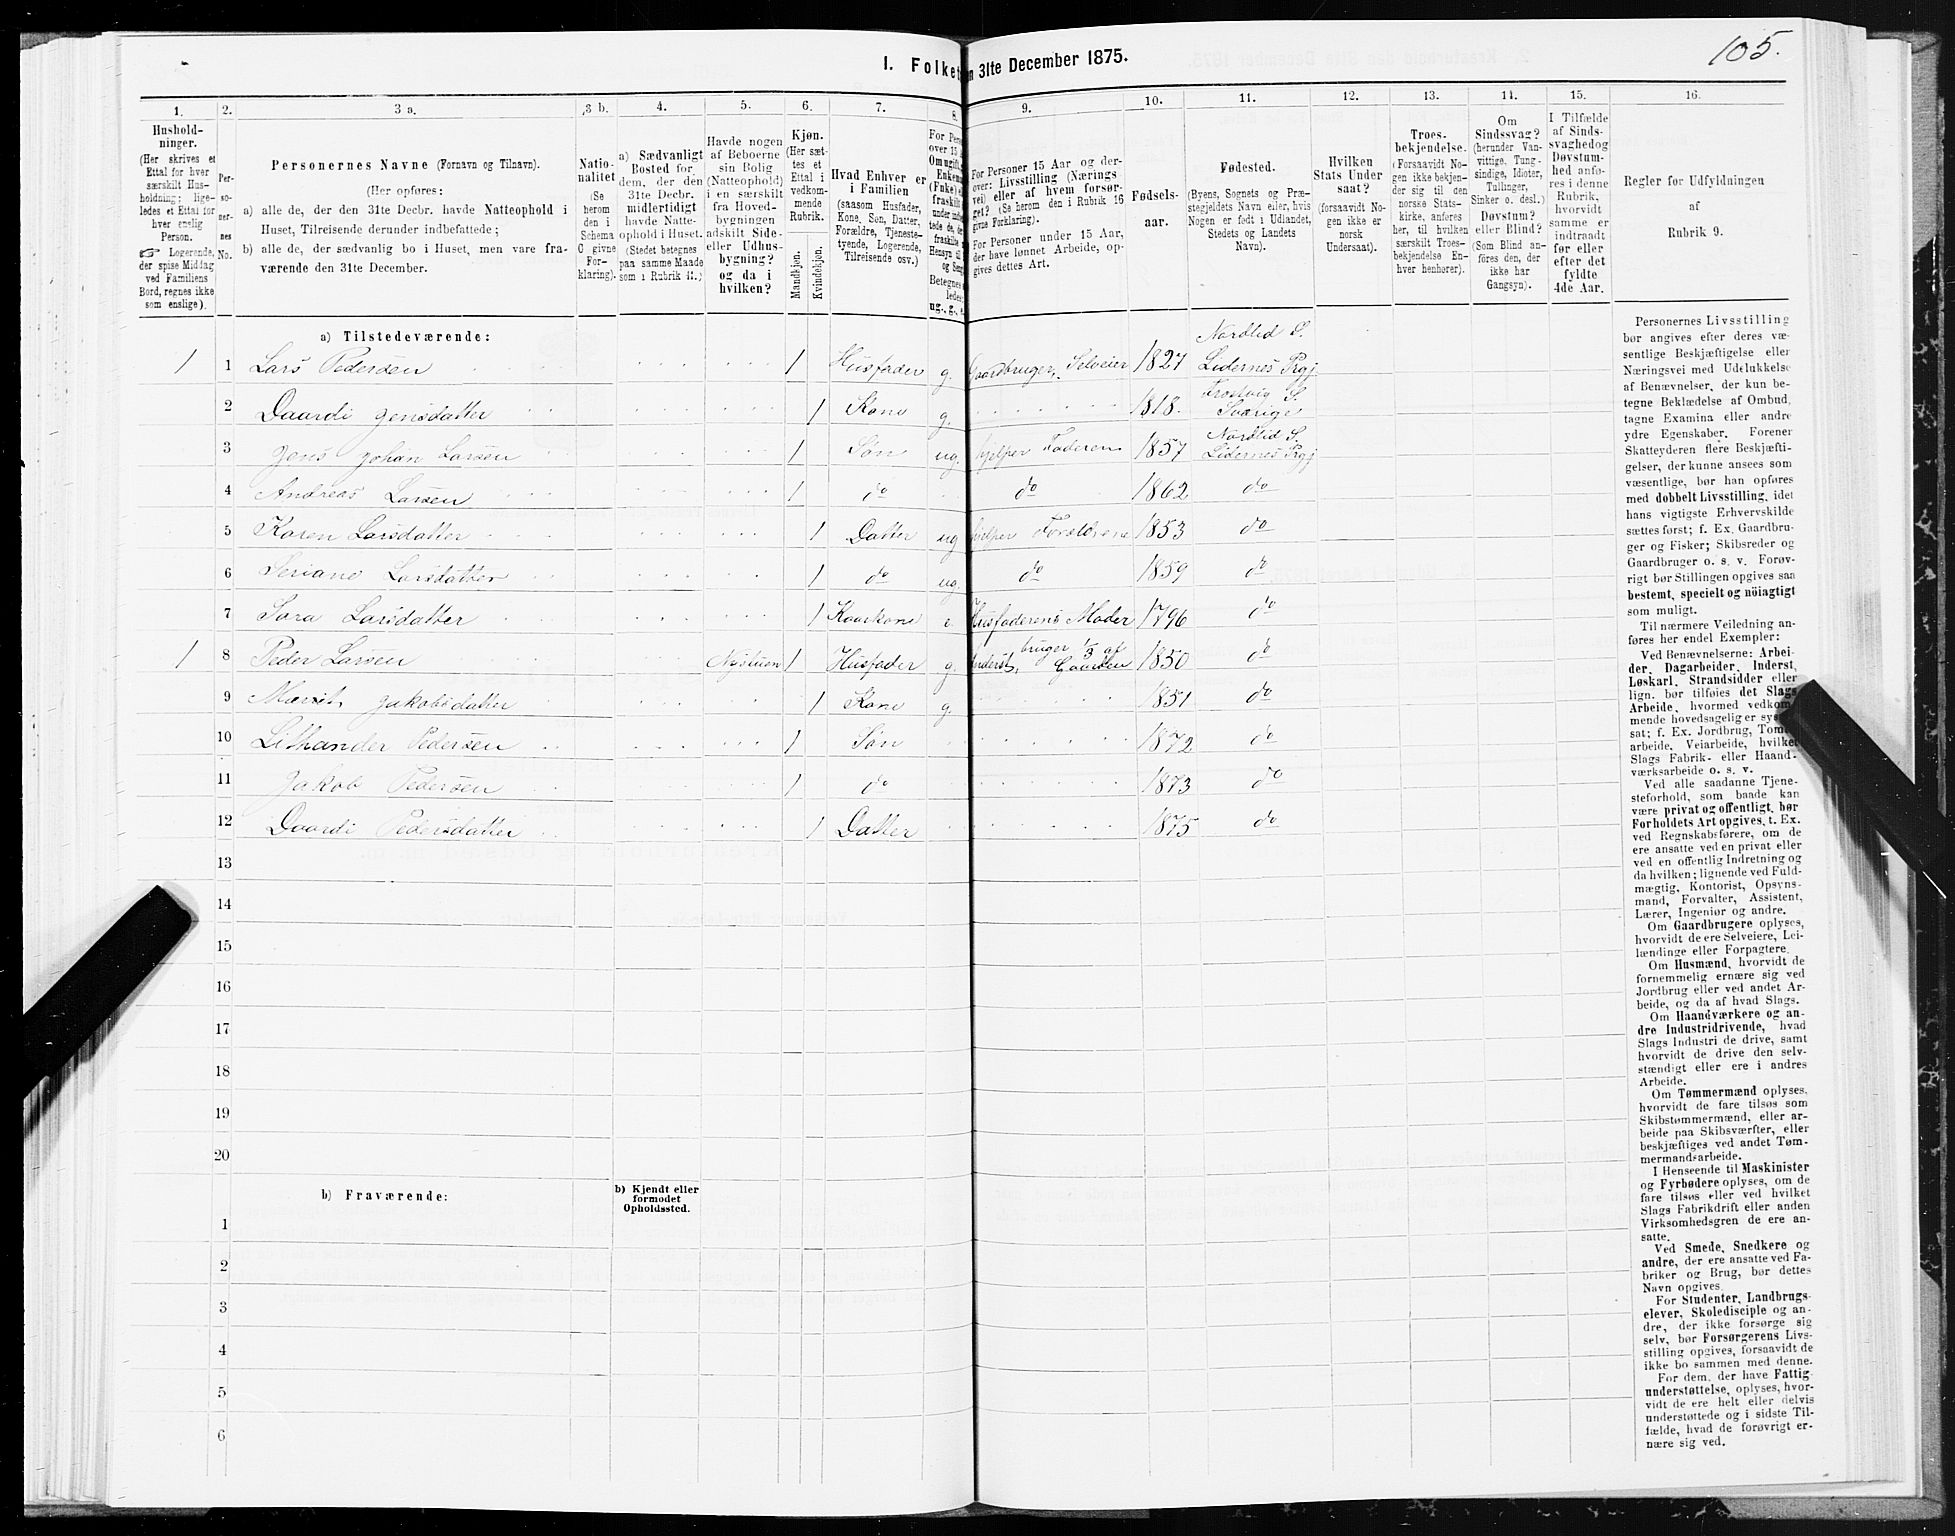 105.
I. Folket
n 31te December 1875.
1. 2. 3 a. 3 b. 4. 5. 6. 7. 8. 9. 10. 11. 12. 13. 14. 15. 16.
Hushold-
ninger.
(Her skrives et
Ettal for hver
særskilt Hus-
holdning; lige-
ledes et Ettal for
hver enslig
Person.
☞ Logerende,
der spise Middag
ved Familiens
Bord, regnes ikke
som enslige).
Per-
so-
ner-
nes
No.
Personernes Navne (Fornavn og Tilnavn).
(Her opføres:
a) alle de, der den 31te Decbr. havde Natteophold i
Huset, Tilreisende derunder indbefattede;
b) alle de, der sædvanlig bo i Huset, men vare fra-
værende den 31te December.
Natio-
nalitet
(Se
herom
den i
Schema
O givne
For-
klaring).
a) Sædvanligt
Bosted for
dem, der den
31te Decbr.
midlertidigt
havde Natte-
ophold i Huset.
(Stedet betegnes
paa samme Maade
som i Rubrik 11.)
Havde nogen
af Beboerne
sin Bolig
(Natteophold)
i en særskilt
fra Hoved-
bygningen
adskilt Side-
eller Udhus-
bygning?
og da i
hvilken?
Kjøn.
(Her sæt-
tes et
Ettal i
vedkom-
mende
Rubrik.
Mandkjøn.
Kvindekjøn.
Hvad Enhver er
i Familien
(saasom Husfader,
Kone, Søn, Datter,
Forældre, Tjeneste-
tyende, Logerende,
Tilreisende osv.)
For Pers
over 15 A
Om ugift,
Enkem
(Enke)
fraskilt
under indb
tede de, de
fraskilte
Hensyn til
og Seng
Betegnes
ledes:
ug., g., e.
For Personer 15 Aar og der-
over: Livsstilling (Nærings-
vei) eller af hvem forsør-
get? (Se herom den i Rubrik 16
givne Forklaring).
For Personer under 15 Aar,
der have lønnet Arbeide, op-
gives dettes Art.
Fødsels-
aar.
Fødested.
(Byens, Sognets og Præ-
stegjeldets Navn eller, hvis
Nogen er født i Udlandet,
Stedets og Landets
Navn).
Hvilken
Stats Under
saat?
(forsaavidt No-
gen ikke er
norsk
Undersaat).
Troes-
bekjendelse.
(Forsaavidt No-
gen ikke bekjen-
der sig til den
norske Stats-
kirke, anføres
her, til hvilken
særskilt Troes-
bekjendelse En-
hver henhører).
Om
Sindssvag?
(herunder Van-
vittige, Tung-
sindige, Idioter,
Tullinger,
Sinker o. desl.)
Døvstum?
eller Blind?
(Som Blind an-
føres den, der
ikke har
Gangsyn).
I Tilfælde
af Sinds-
svaghedog
Døvstum-
hed anfø-
res i denne
Rubrik,
hvorvidt
samme er
indtraadt
før eller
efter det
fyldte
4de Aar.
Regler for Udfyldningen
af
Rubrik 9.
a) Tilstedeværende:
1 1 Lars Pedersen 1 Husfader g. Gaardbruger, Selveier 1827 Nordlid S. Lidernes Prgj
2 Daardi Jensdatter 1 Kone g. 1818. Frostvig S. Sverige
3 Jens Johan Larsen 1 Søn ug. hjelper Faderen 1857 Nordlid S. Lidernes Prgj
4 Andreas Larsen 1 do do 1862 do
5 Karen Larsdatter 1 Datter ug hjelper Forældrene 1853 do
6 Seriane Larsdatter 1 do ug. do 1859 do
7 Sara Larsdatter 1 Kaarkone e. Husfaderens Moder 1796 do
1 8 Peder Larsen Nystuen 1 Husfader g. Inderst, bruger 1/3 af Gaarden 1850 do
9 Marit Jakobsdatter 1 Kone g. 1851 do
10 Lithander Pedersen 1 Søn 1872 do
11 Jakob Pedersen 1 do 1873 do
12 Daardi Pedersdatter 1 Datter 1875 do
13
14
15
16
17
18
19
20
b) Fraværende:
b) Kjendt eller
formodet
Opholdssted.
1
2
3
4
5
6
Personernes Livsstilling
bør angives efter deres væ-
sentlige Beskjæftigelse eller
Næringsvei med Udelukkelse
af Benævnelser, der kun be-
tegne Beklædelse af Ombud,
tagne Examina eller andre
ydre Egenskaber. Forener
Skatteyderen flere Beskjæfti-
gelser, der kunne ansees som
væsentlige, bør han opføres
med dobbelt Livsstilling, idet
hans vigtigste Erhvervskilde
sættes først; f. Ex. Gaardbru-
ger og Fisker; Skibsreder og
Gaardbruger o. s. v. Forøv-
rigt bør Stillingen opgives saa
bestemt, specielt og nöiagtigt
som muligt.
Til nærmere Veiledning an-
føres her endel Exempler:
Ved Benævnelserne: Arbei-
der, Dagarbeider, Inderst,
Løskarl, Strandsidder eller
lign. bør tilføies det Slags
Arbeide, hvormed vedkom-
mende hovedsagelig er sys
sat; f. Ex. Jordbrug, Tøm
arbeide, Veiarbeide, hvilket
Slags Fabrik- eller Haand-
værksarbeide o. s. v.
Ved alle saadanne Tjene-
steforhold, som baade kan
være privat og offentligt, bør
Forholdets Art opgives, t. Ex.
ved Regnskabsførere, om de
ere ansatte ved en privat eller
ved en offentlig Indretning og
da hvilken; lignende ved Fuld-
mægtig, Kontorist, Opsyns-
mand, Forvalter, Assistent,
Lærer, Ingeniør og andre.
Om Gaardbrugere oplyses,
hvorvidt de ere Selveiere, Lei-
lændinge eller Forpagtere.
Om Husmænd, hvorvidt de
fornemmelig ernære sig ved
Jordbrug eller ved andet Ar-
beide, og da af hvad Slags.
Om Haandværkere og an-
dre Industridrivende, hvad
Slags Industri de drive, samt
hvorvidt de drive den selv-
stændigt eller ere i andres
Arbeide.
Om Tømmermænd oplyses,
hvorvidt de fare tilsøs som
Skibstømmermænd, eller ar-
beide paa Skibsværfter, eller
beskjæftiges ved andet Tøm-
mermandsarbeide.
I Henseende til Maskinister
og Fyrbødere oplyses, om de
fare tilsøs eller ved hvilket
Slags Fabrikdrift eller anden
Virksomhedsgren de ere an-
satte.
Ved Smede, Snedkere og
andre, der ere ansatte ved Fa-
briker og Brug, bør dettes
Navn opgives.
For Studenter, Landbrugs-
elever, Skoledisciple og an-
dre, der ikke forsørge sig
selv, bør Forsørgerens Livs-
stilling opgives, forsaavidt de
ikke bo sammen med denne.
For dem, der have Fattig-
understøttelse, oplyses, hvor-
vidt de ere helt eller delvis
understøttede og i sidste Til-
fælde, hvad de forøvrigt er-
nære sig ved.